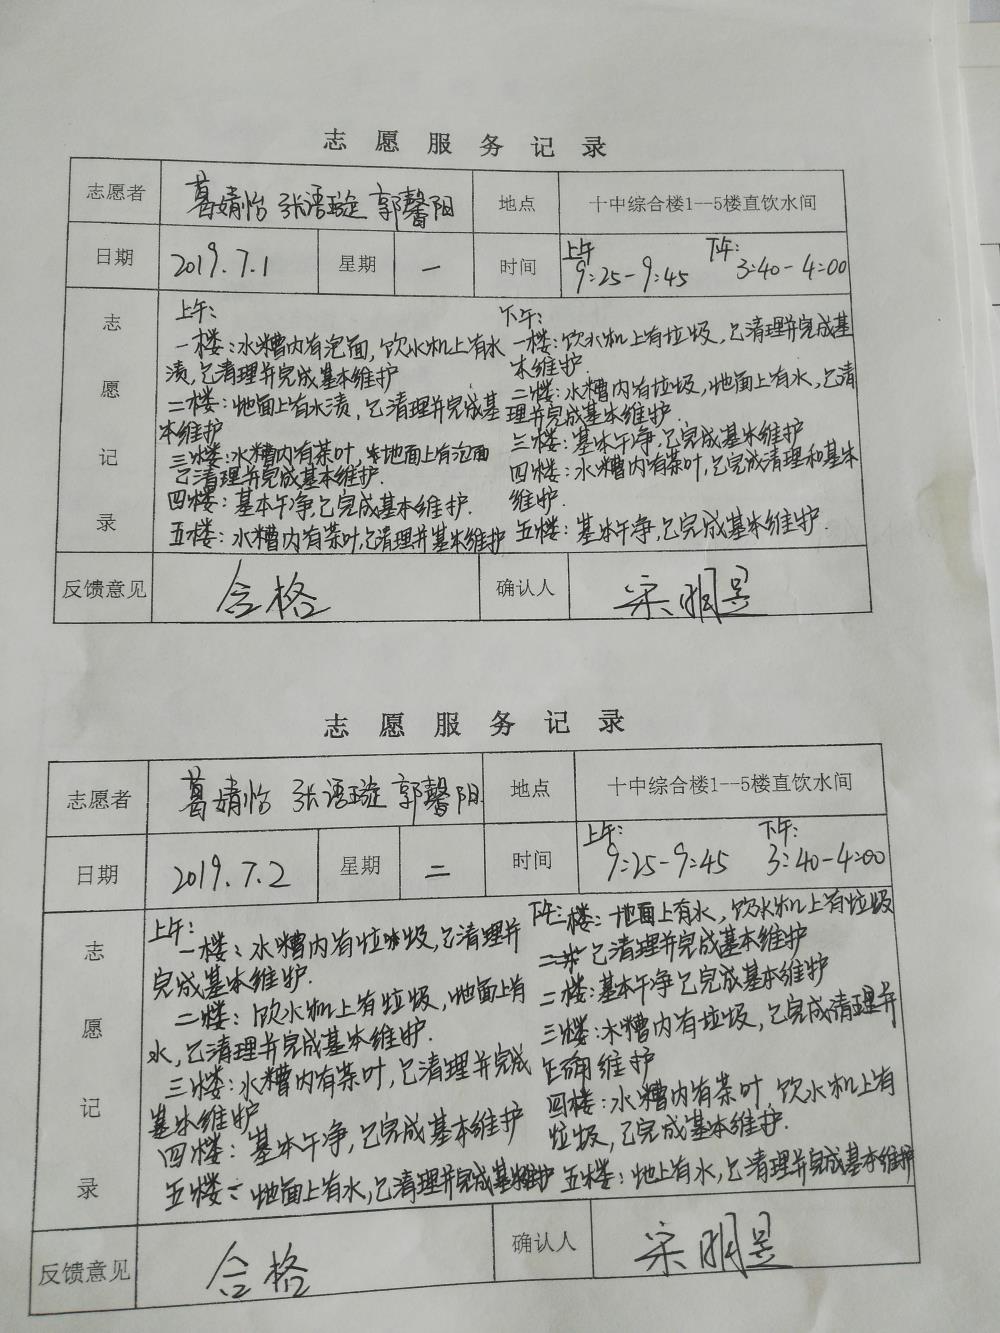 志愿服务记录
志愿者 葛婧怡 张语璇 郭馨阳 地点 十中综合楼1--5楼直饮水间
日期 2019.7.1 星期 一 时间 上午 9:25-9:45 下午: 3:40-4:00
志愿记录
上午:
一楼:水糟内有泡面,饮水机上有水
渍,已清理并完成基本维护
二楼:地面上有水渍,已清理并完成基
本维护
三楼:水糟内有茶叶,地面上有泡面
已清理并完成基本维护.
四楼:基本干净,已完成基本维护.
五楼:水糟内有茶叶,已清理并基本维护
下午:
一楼:饮水机上有垃圾,已清理并完成基
本维护.
二楼:水糟内有垃圾,地面上有水,已清
理并完成基本维护.
三楼:基本干净,已完成基本维护
四楼:水糟内有茶叶,已完成清理和基本
维护.
五楼:基本干净,已完成基本维护.
反馈意见 合格 确认人 宋明昱
志愿服务记录
志愿者 葛婧怡 张语璇 郭馨阳 地点 十中综合楼1--5楼直饮水间
日期 2019.7.2 星期 二 时间 上午: 9:25-9:45 下午: 3:40-4:00
志愿记录
上午:
一楼:水糟内有垃圾,已清理并
完成基本维护.
二楼:饮水机上有垃圾,地面上有
水,已清理并完成基本维护.
三楼:水糟内有茶叶,已清理并完成
基本维护
四楼:基本干净,已完成基本维护
五楼:地面上有水,已清理并完成基本维护
下午:一楼:地面上有水,饮水机上有垃圾
已清理并完成基本维护
二楼:基本干净已完成基本维护
三楼:水糟内有垃圾,已完成清理并
维护
四楼:水糟内有茶叶,饮水机上有
垃圾,已完成基本维护.
五楼:地上有水,已清理并完成基本维护
反馈意见 合格 确认人 宋明昱